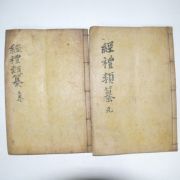 經禮類纂
經禮類纂